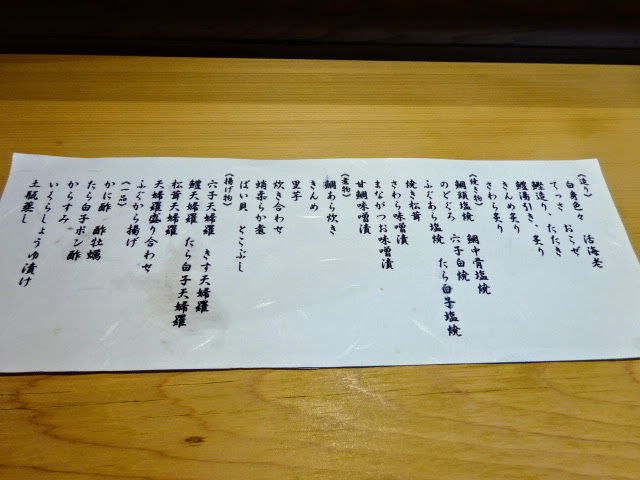 （造り）
白身色々　おこぜ　活海老
てっさ　てっぴ
鰹造り、たたき
鱧湯引き、炙り
きんめ炙り
さわら炙り
（焼き物）
鯛頭塩焼　鯛中骨塩焼
のどぐろ　穴子白焼
ふぐあら塩焼　たら白子塩焼
焼き松茸
さわら味噌漬
まながつお味噌漬
甘鯛味噌漬
（煮物）
鯛あら炊き
きんめ
里芋
炊き合わせ
蛸柔らか煮
ばい貝　とこぶし
（揚げ物）
穴子天婦羅　きす天婦羅
鱧天婦羅　たら白子天婦羅
松茸天婦羅
天婦羅盛り合わせ
ふぐから揚げ
（一品）
かに酢　酢牡蠣
たら白子ポン酢
からすみ
いくらしょうゆ漬け
土瓶蒸し